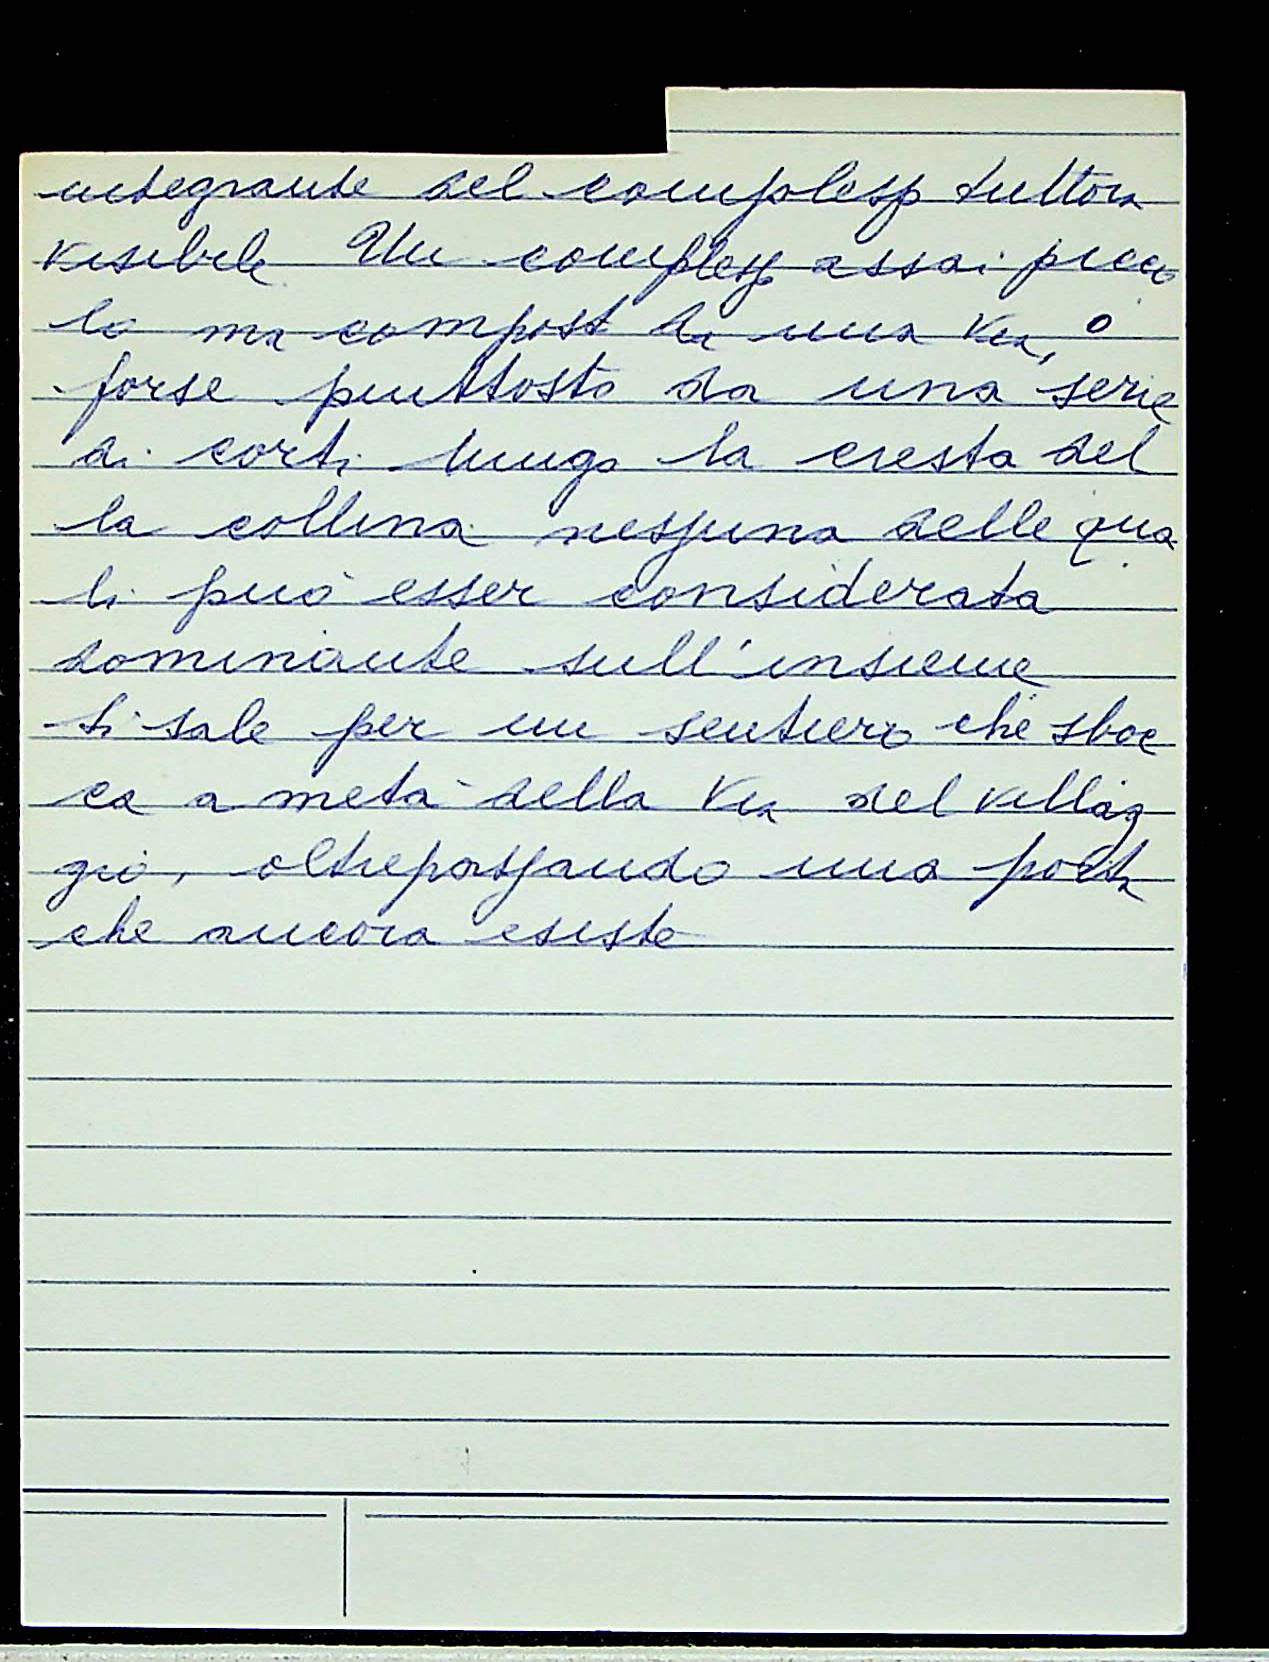 integrante del complesso tuttora
visibile Un complesso assai picco
lo ma composto da una via, o
forse piuttosto da una serie
di corti lungo la cresta del
la collina nessuna delle qua
li può esser considerata
dominante sull'insieme
Si sale per un sentiero che sboc
ca a metà della via del villag
gio, oltrepassando una porta
che ancora esiste